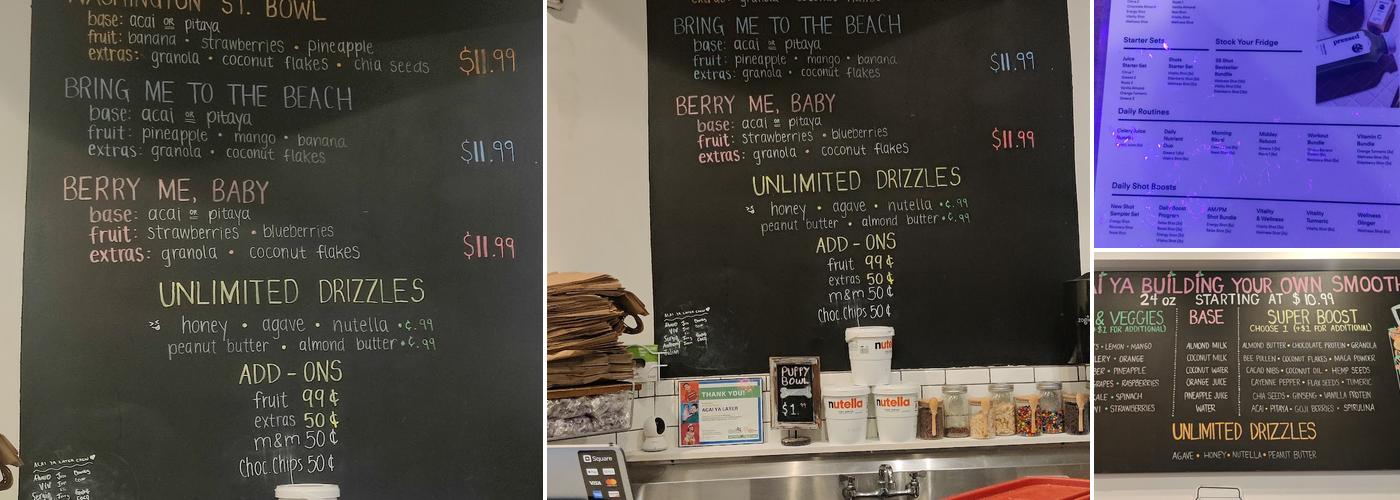 WASHINGTON ST. BOWL
base: acai or pitaya
fruit: banana • strawberries • pineapple
extras: granola • coconut flakes • chia seeds
$11.99
BRING ME TO THE BEACH
base: acai or pitaya
fruit: pineapple • mango • banana
extras: granola • coconut flakes
$11.99
BERRY ME, BABY
base: acai or pitaya
fruit: strawberries • blueberries
extras: granola • coconut flakes
$11.99
UNLIMITED DRIZZLES
honey • agave • nutella • ¢.99
peanut butter • almond butter • ¢.99
ADD-ONS
fruit 99¢
extras 50¢
m&m 50¢
Choc. Chips 50¢
ACAI YA LATER CREW
BRING ME TO THE BEACH
base: acai or pitaya
fruit: pineapple • mango • banana
extras: granola • coconut flakes
$11.99
BERRY ME, BABY
base: acai or pitaya
fruit: strawberries • blueberries
extras: granola • coconut flakes
$11.99
UNLIMITED DRIZZLES
honey • agave • nutella • ¢.99
peanut butter • almond butter • ¢.99
ADD-ONS
fruit 99¢
extras 50¢
m&m 50¢
Choc. Chips 50¢
ACAI YA LATER CREW
nute
nutella
nutella
THANK YOU!
ACAI YA LATER
PUPPY
BOWL
$1.99
Square
VISA
pressed
Starter Sets
Stock Your Fridge
Juice
Starter Set
Shots
Starter Set
Bestseller
Bundle
Daily Routines
Celery Juice
Daily
Nutrient
Duo
Morning
Midday
Reboot
Workout
Bundle
Vitamin C
Bundle
Daily Shot Boosts
New Shot
Sampler Set
Daily Boost
Program
AM/PM
Shot Bundle
Vitality
& Wellness
Vitality
Turmeric
Wellness
Ginger
AI YA BUILDING YOUR OWN SMOOTH
24 oz STARTING AT $10.99
& VEGGIES
+$1 FOR ADDITIONAL)
BASE
SUPER BOOST
CHOOSE 1 (+$1 FOR ADDITIONAL)
LEMON • MANGO
LERY • ORANGE
BER • PINEAPPLE
GRAPES • RASPBERRIES
ALE • SPINACH
WI • STRAWBERRIES
ALMOND MILK
COCONUT MILK
COCONUT WATER
ORANGE JUICE
PINEAPPLE JUICE
WATER
ALMOND BUTTER • CHOCOLATE PROTEIN • GRANOLA
BEE POLLEN • COCONUT FLAKES • MACA POWDER
CACAO NIBS • COCONUT OIL • HEMP SEEDS
CAYENNE PEPPER • FLAX SEEDS • TUMERIC
CHIA SEEDS • GINSENG • VANILLA PROTEIN
ACAI • PITAYA • GOJI BERRIES • SPIRULINA
UNLIMITED DRIZZLES
AGAVE • HONEY • NUTELLA • PEANUT BUTTER